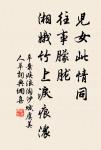 儿女此情同
往事朦胧
湘娥竹上泪痕浓
辛弃疾浪淘沙赋虞美
人草词典调集